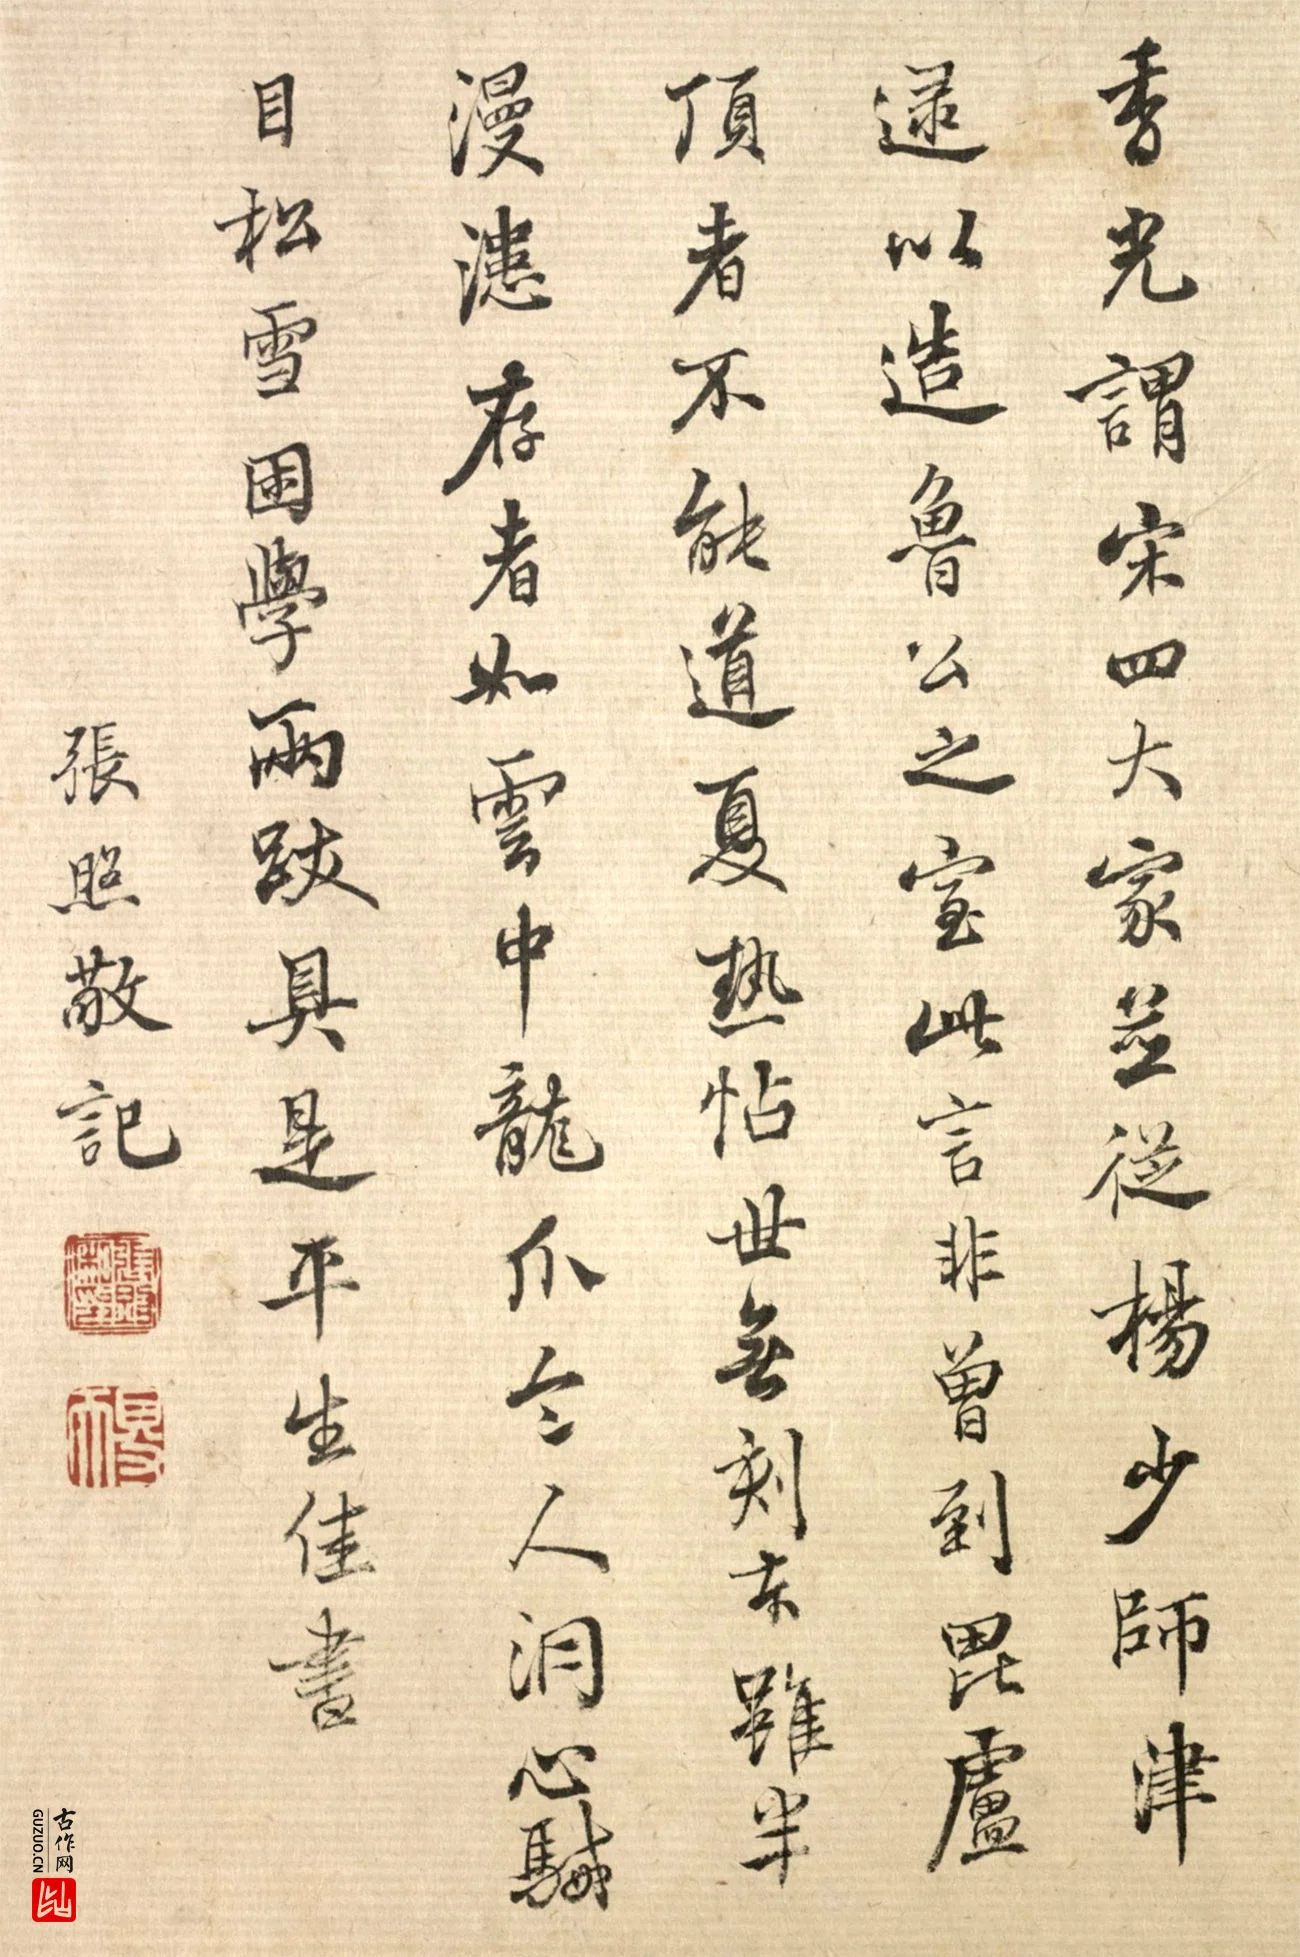 香光謂宋四大家並從楊少師津
逯以造魯公之室此言非曾到毘盧
頂者不能道夏熱帖世無刻本雖半
漫漶存者如雲中龍爪令人洞心駴
目松雪困學兩跋具是平生佳書
張照敬記
古作网
GUZUO.CN